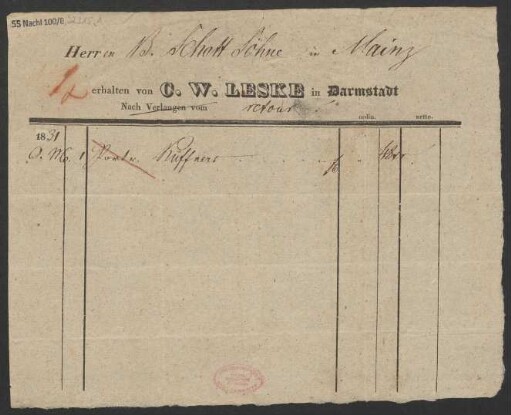 55 Nachl 100/B
Herren B. Schott Söhne in Mainz
erhalten von C. W. LESKE in Darmstadt
Nach Verlangen vom retour
ordin. netto.
1831
O. M. 1 Portr. Küffners